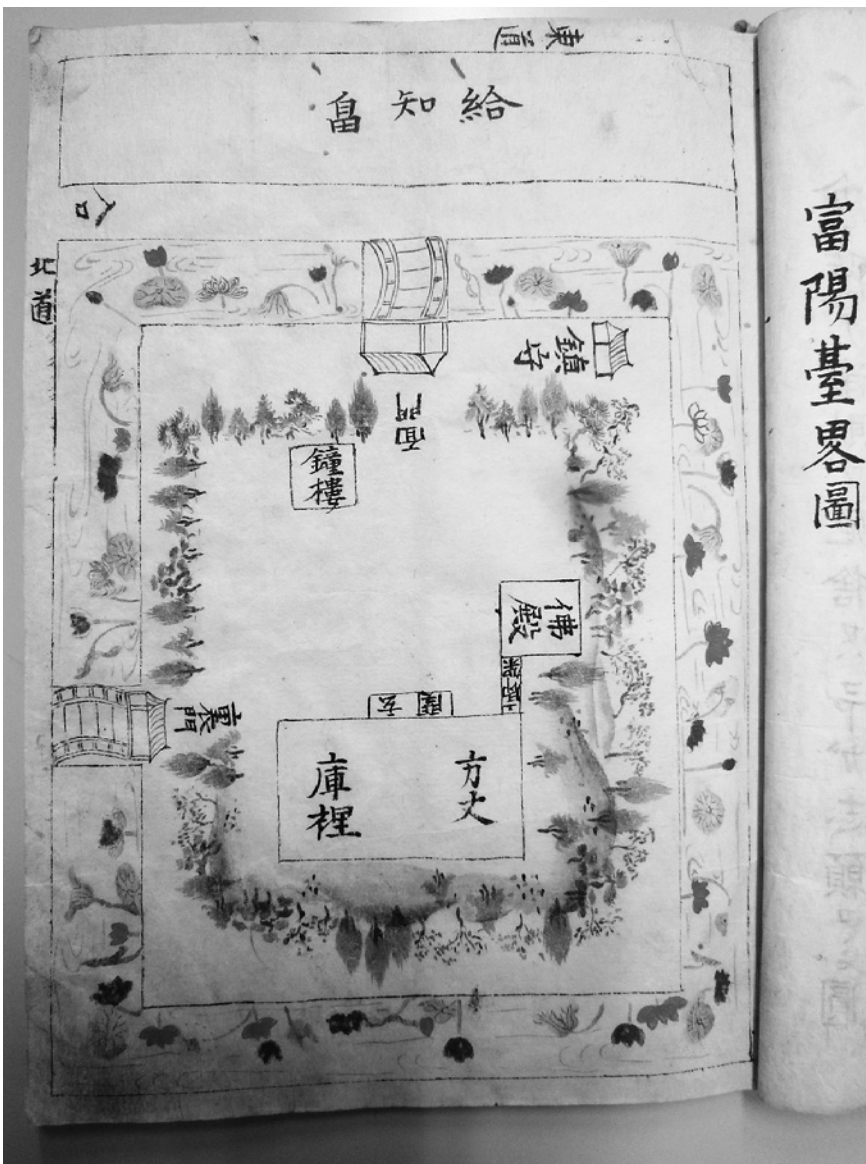 富陽臺畧圖
東道
給知畠
入口
北道
鎮守
面門
鐘樓
佛殿
玄関
裏門
方丈
庫裡